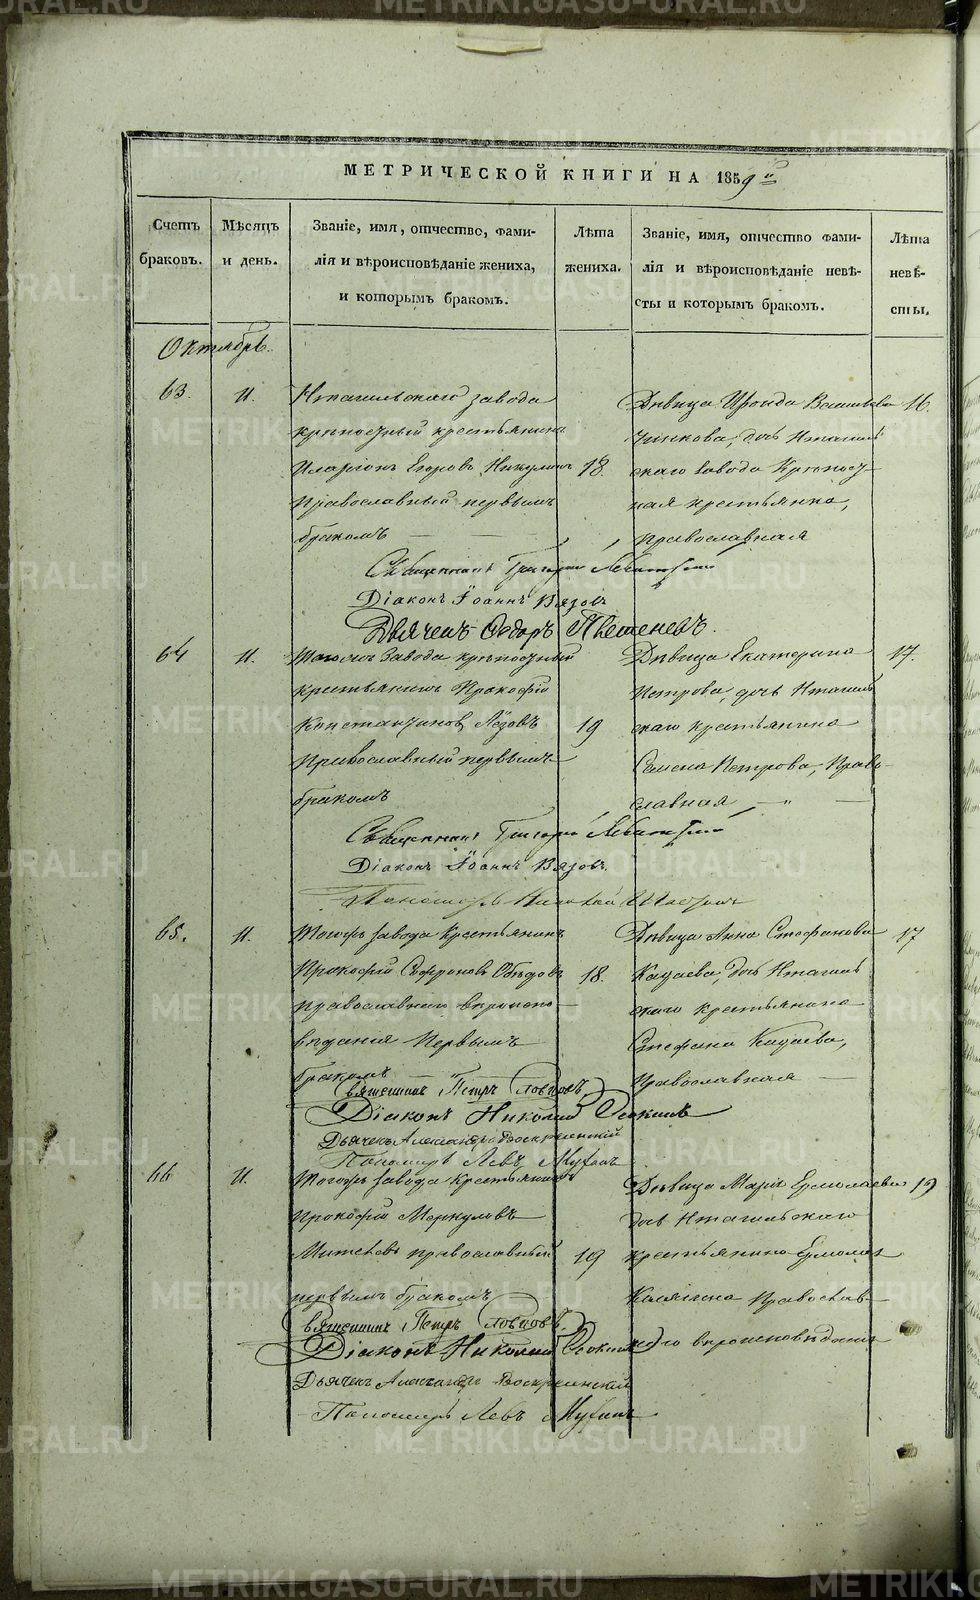 МЕТРИЧЕСКОЙ КНИГИ НА 1859 й
Счетъ браковъ.
Мѣсяцъ и день.
Званіе, имя, отчество, фами-
лія и вѣроисповѣданіе жениха,
и которымъ бракомъ.
Лѣта
жениха.
Званіе, имя, отчество фами-
лія и вѣроисповѣданіе невѣ-
сты и которымъ бракомъ.
Лѣта
невѣ-
сты.
Октябрь.
63.
11.
Нтагильскаго завода
крѣпостный крестьянинъ
Иларіонъ Егоровъ Никулинъ 18
православный первымъ
бракомъ
Дѣвица Ироида 16
дочь Нтагиль
скаго завода крѣпост
ная крестьянка,
православная
Священникъ Григорій
Діаконъ Іоаннъ Вязовъ
Дьячекъ Ѳедоръ
64
11.
Тогожъ завода крѣпостный
крестьянинъ Прокофій
Константиновъ 19
Православный первымъ
бракомъ
Дѣвица Екатерина 17.
Петрова, дочь Нтагиль
скаго крестьянина
Семена Петрова, Право-
славная
Священникъ Григорій
Діаконъ Іоаннъ Вязовъ.
Пономарь Николай
65.
11.
Тогожъ завода Крестьянинъ
Прокофій Софроновъ 18.
православнаго вѣроиспо-
вѣданія Первымъ
бракомъ
Дѣвица Анна Стефанова 17
Кацаева, дочь Нтагиль
скаго крестьянина
Стефана Кацаева,
православная
Священникъ Петръ Словцовъ
Діаконъ Николай
Дьячекъ Александръ Воскресенскій
Пономарь Левъ Мухинъ
66
11.
Тогожъ завода Крестьянинъ
Прокофій Меркуловъ
православный 19
первымъ бракомъ
Дѣвица Марія Ермолаева 19
дочь Нтагильскаго
крестьянина Ермолая
Православ-
наго вѣроисповѣданія
Священникъ Петръ Словцовъ.
Діаконъ Николай
Дьячекъ Александръ Воскресенскій
Пономарь Левъ Мухинъ
METRIKI.GASO-URAL.RU